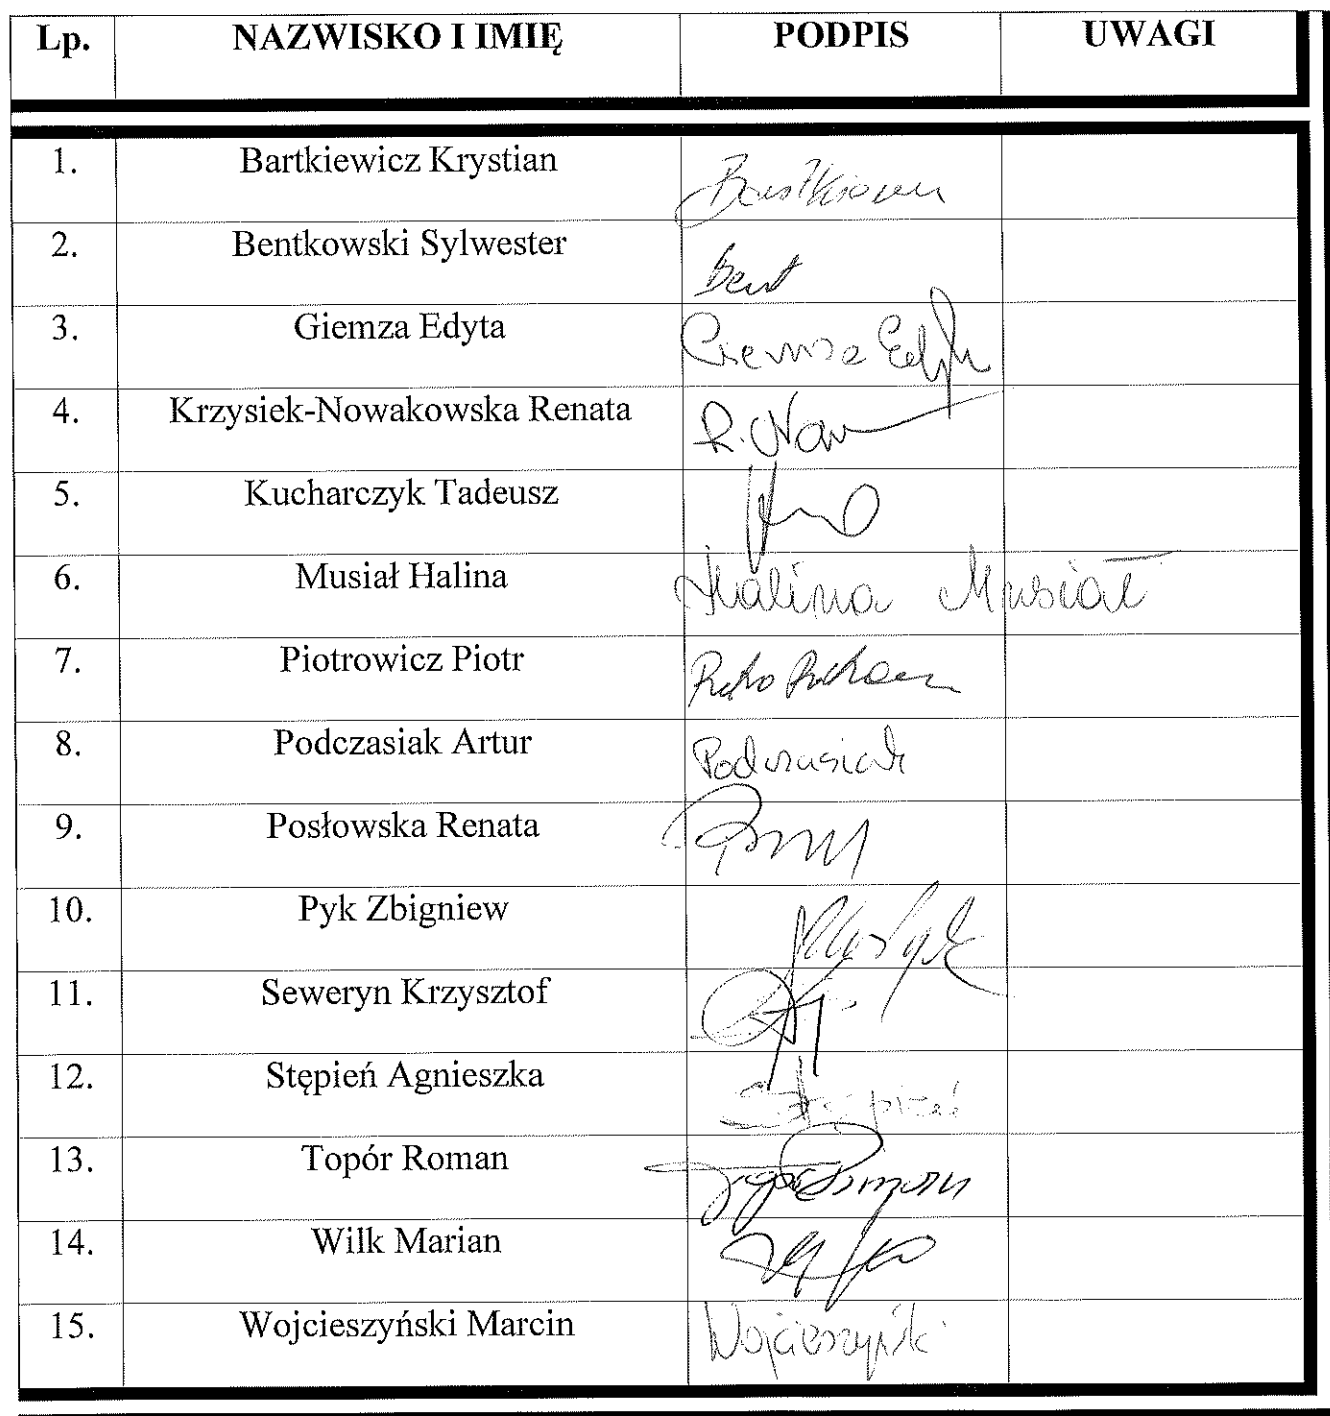 Lp. NAZWISKO I IMIĘ PODPIS UWAGI
1. Bartkiewicz Krystian
2. Bentkowski Sylwester Bent
3. Giemza Edyta Giemza Edyta
4. Krzysiek-Nowakowska Renata R. Now
5. Kucharczyk Tadeusz
6. Musiał Halina Halina Musiał
7. Piotrowicz Piotr
8. Podczasiak Artur Podczasiak
9. Posłowska Renata
10. Pyk Zbigniew
11. Seweryn Krzysztof
12. Stępień Agnieszka Stępień
13. Topór Roman Topór Roman
14. Wilk Marian
15. Wojcieszyński Marcin Wojcieszyński